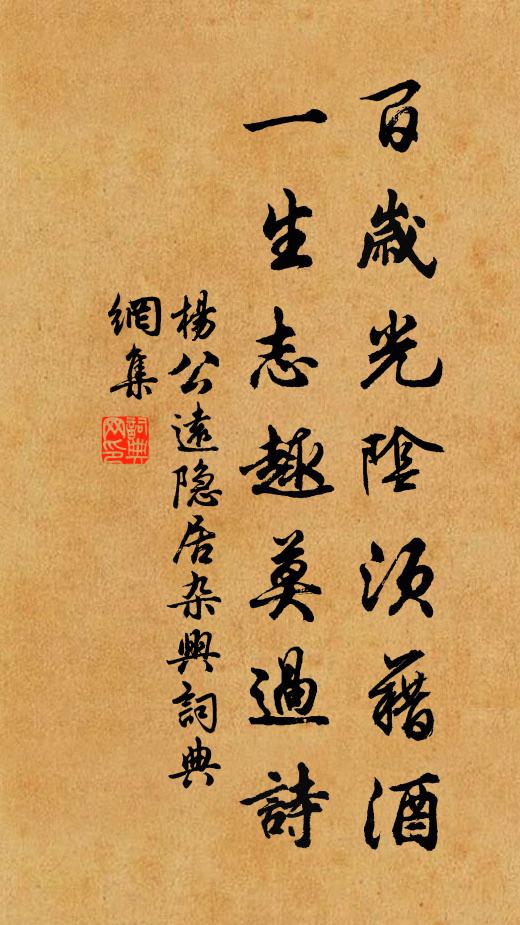 百歲光陰須藉酒
一生志趣莫過詩
楊公遠隐居杂興詞典
網集
詞典
网印